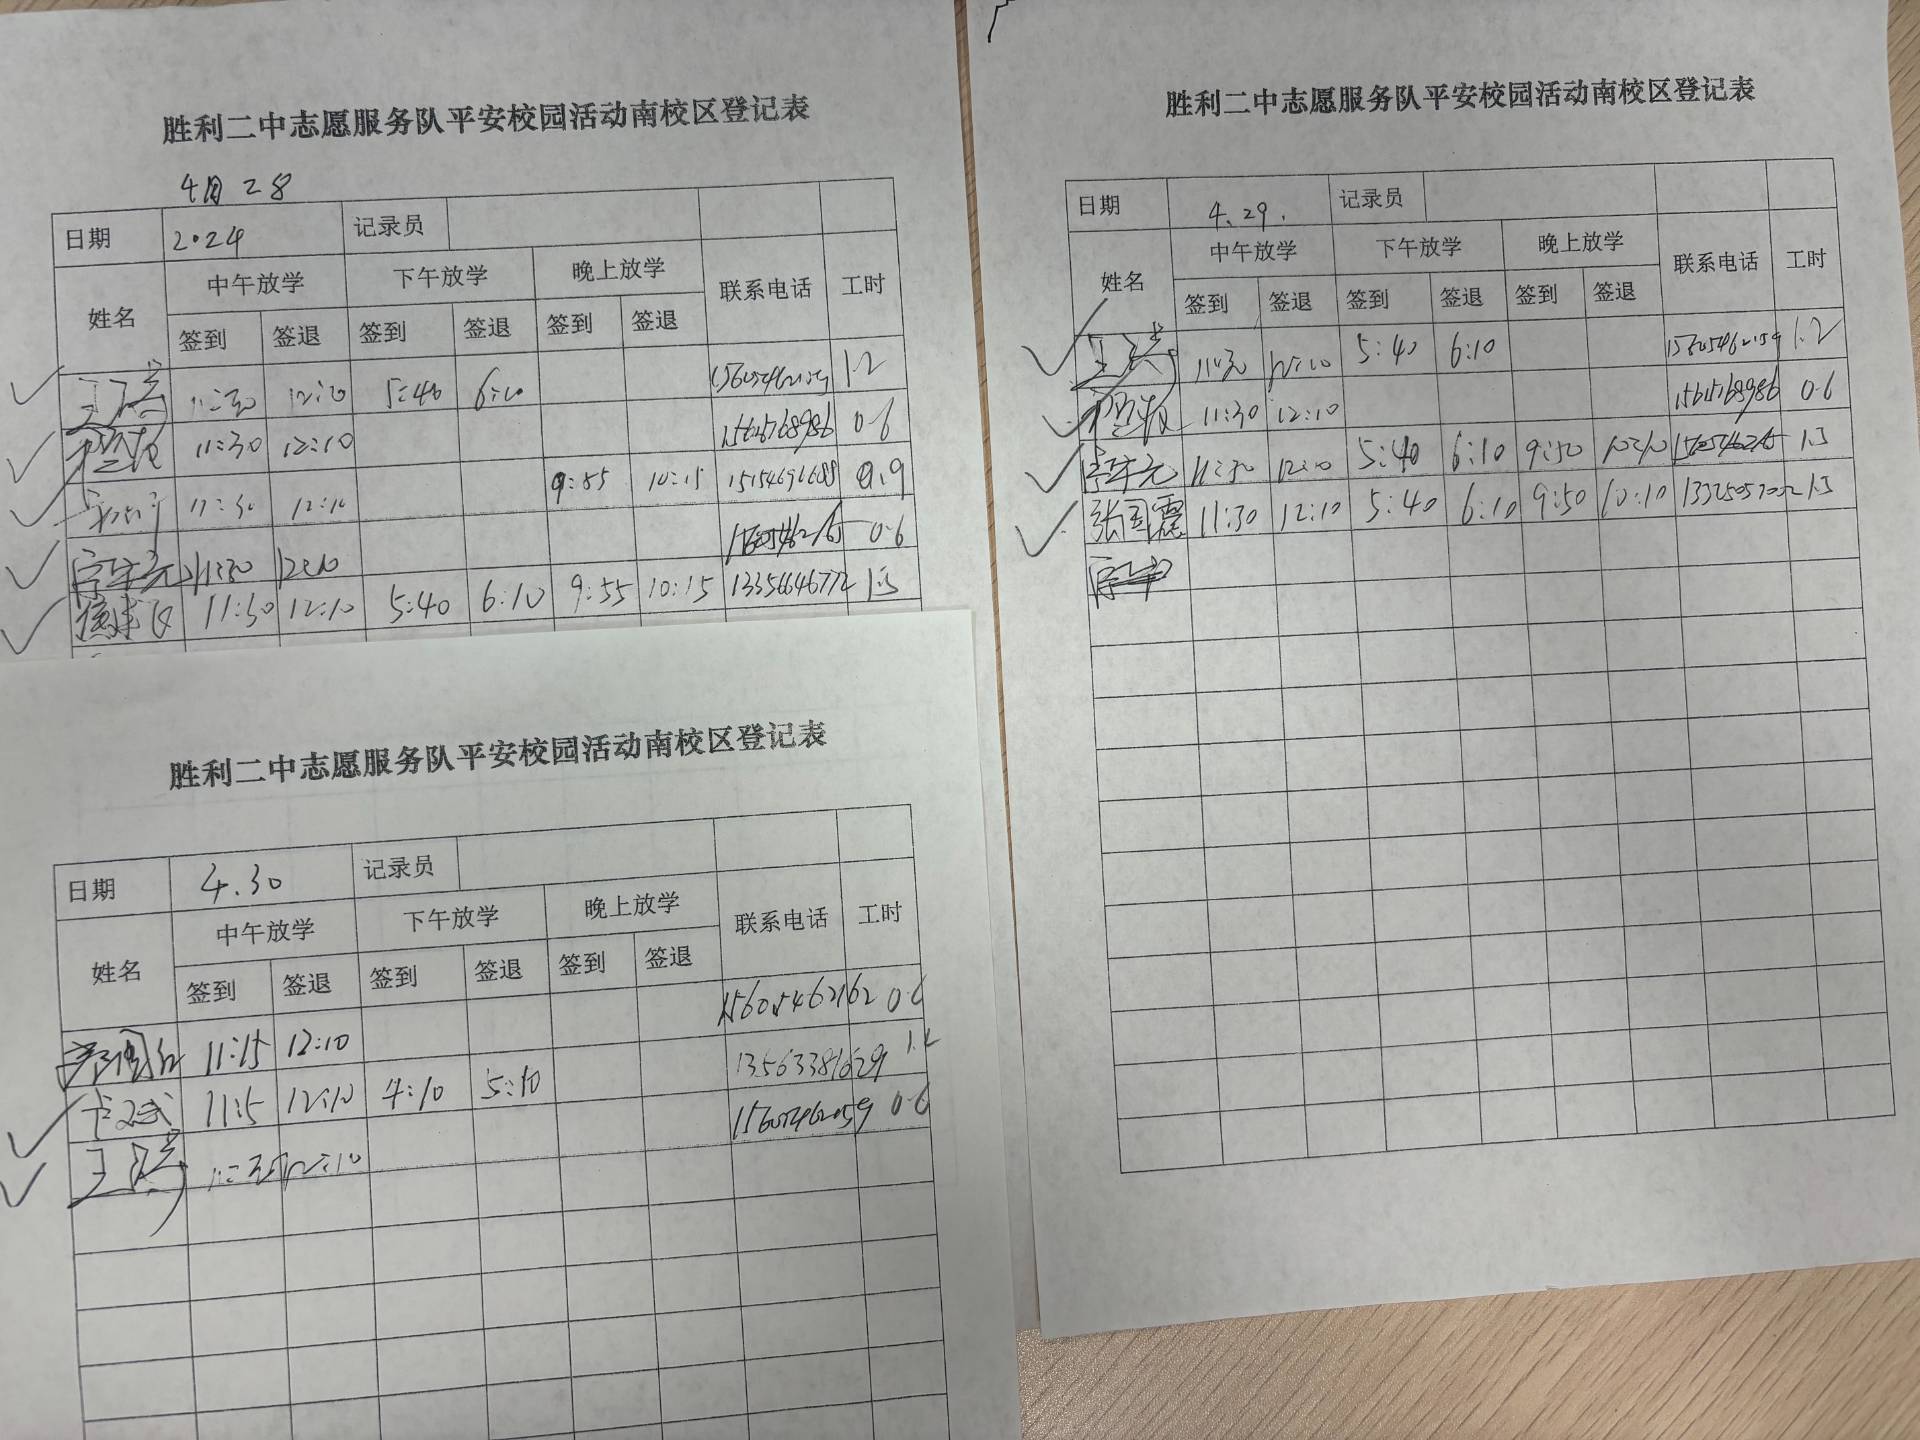 胜利二中志愿服务队平安校园活动南校区登记表
4月28
日期 2024 记录员
姓名 中午放学 下午放学 晚上放学 联系电话 工时
签到 签退 签到 签退 签到 签退
11:30 12:10 5:40 6:10 1.2
11:30 12:10 15615768986 0.6
11:30 12:10 9:55 10:15 0.9
11:30 12:10 0.6
11:30 12:10 5:40 6:10 9:55 10:15 13356646772 1.5
胜利二中志愿服务队平安校园活动南校区登记表
日期 4.29. 记录员
姓名 中午放学 下午放学 晚上放学 联系电话 工时
签到 签退 签到 签退 签到 签退
11:30 12:10 5:40 6:10 1.2
11:30 12:10 15615768986 0.6
11:30 12:10 5:40 6:10 9:50 10:10 1.5
张国震 11:30 12:10 5:40 6:10 9:50 10:10 1.5
胜利二中志愿服务队平安校园活动南校区登记表
日期 4.30 记录员
姓名 中午放学 下午放学 晚上放学 联系电话 工时
签到 签退 签到 签退 签到 签退
11:15 12:10 15605462162 0.6
11:15 12:10 4:10 5:10 13563381629 1.2
王 11:30 12:10 15605462059 0.6